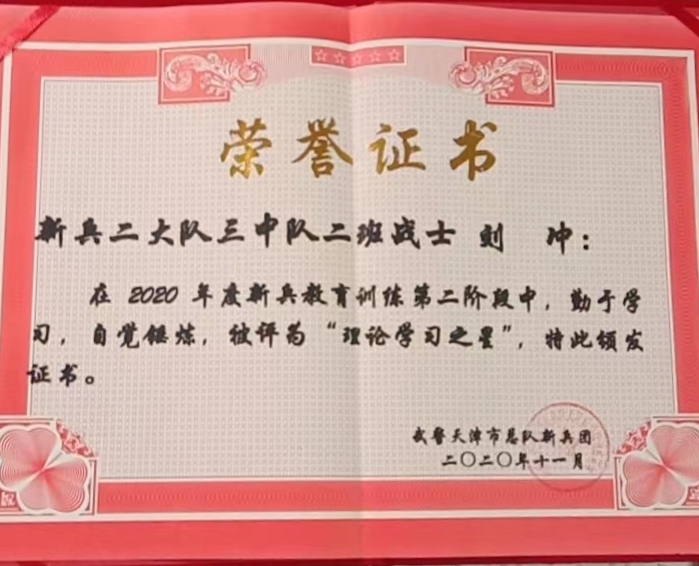 荣誉证书
新兵二大队三中队二班战士 刘 冲：
在 2020 年度新兵教育训练第二阶段中，勤于学
习，自觉锤炼，被评为“理论学习之星”，特此颁发
证书。
武警天津市总队新兵团
二〇二〇年十一月